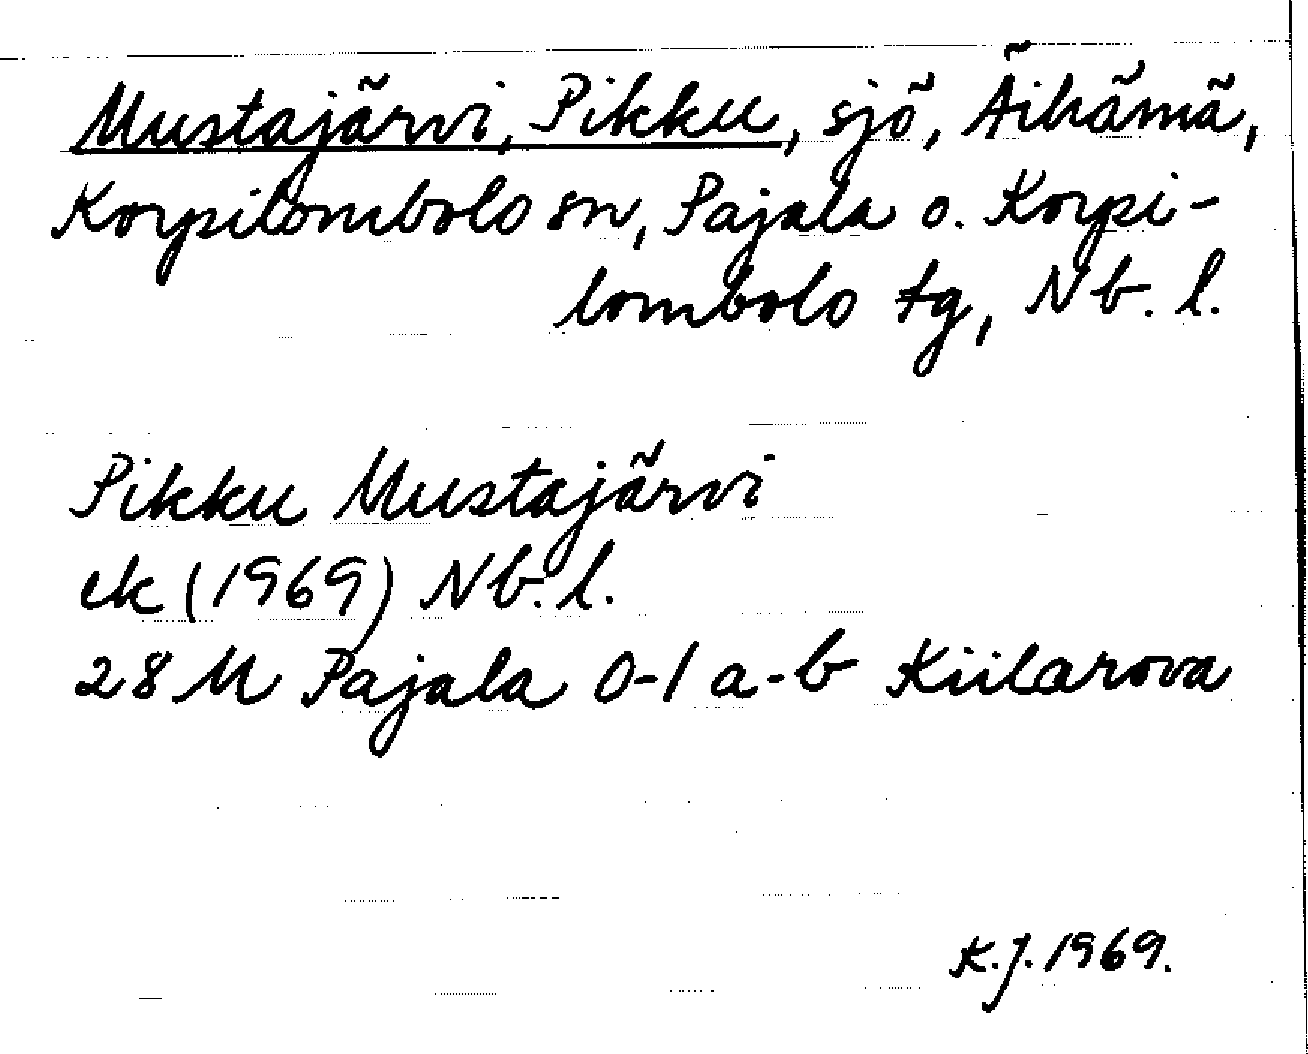 Mustajärvi, Pikku, sjö, Äihämä,
Korpilombolo sn, Pajala o. Korpi-
lombolo tg, Nb. l.
Pikku Mustajärvi
ek (1969) Nb. l.
28 M Pajala 0-1 a-b Kiilarova
K.J. 1969.